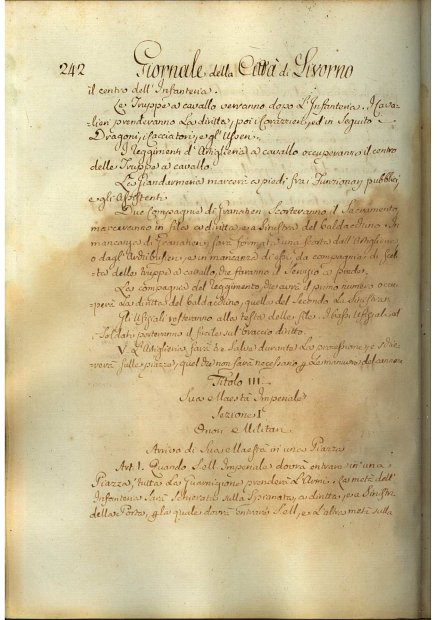 242 Giornale della Città di Livorno
il centro dell'Infanteria.
Le Truppe a cavallo verranno dopo l'Infanteria. I Cava-
lieri prenderanno la diritta, poi i Corazzieri, ed in seguito
Dragoni, i Cacciatori, e gl'Usseri.
I Reggimenti d'Artiglieria a cavallo occuperanno il centro
delle Truppe a cavallo.
La Giandarmeria marcerà a piedi frai Funzionarj pubblici
e gli Assistenti.
Due Compagnie di Granatieri scorteranno il Sacramento,
marceranno in file a diritta, e a sinistra del baldacchino. In
mancanza di Granatieri, sarà formata una scorta dall'Artigliere
o dagl' e in mancanza di essi, da compagnie di scel-
ta delle truppe a cavallo, che faranno il servizio a piede.
La compagnia del Reggimento, che avrà il primo numero occu-
perà la diritta del baldacchino, quella del secondo la sinistra.
Gli Ufficiali resteranno alla testa delle file. I bassi Ufficiali, ed
i Soldati porteranno il fucile sul braccio diritto.
V. L'Artiglieria farà tre salve durante la processione, e
sulle piazze, quel che non sarà necessario p. la manovra del cannone
Titolo III.
Sua Maestà Imperiale
Sezione I.
Onori Militari
Arrivo di Sua Maestà in una Piazza
Art. 1. Quando S. M. Imperiale dovrà entrare in una
Piazza, tutta la Guarnigione prenderà l'Armi. La metà dell'
Infanteria sarà schierata sulla Spianata, a diritta, e a sinistra
della Porta, p. la quale dovrà entrare S. M., e l'altra metà sulla